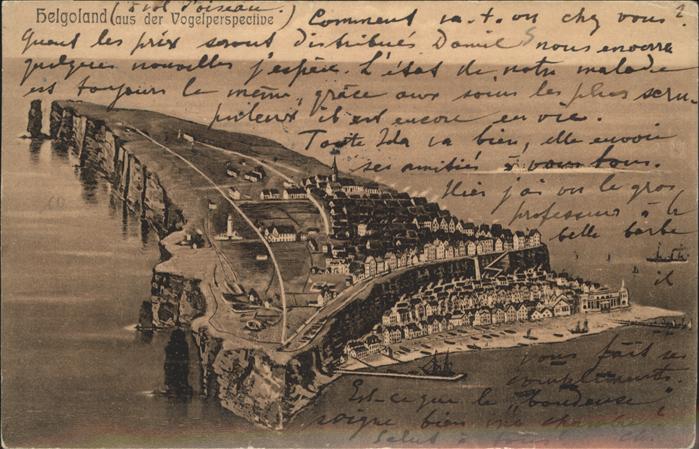 (à vol d'oiseau.)
Helgoland (aus der Vogelperspective)
Comment va-t-on chez vous?
Quand les prix seront distribués Daniel S nous enverra
quelques nouvelles j'espère. L'état de notre malade
est toujours le même, grâce aux soins les plus scru-
puleux il est encore en vie.
Tante Ida va bien, elle envoie
ses amitiés à vous tous.
Hier j'ai vu le gros
professeur à la
belle barbe
il
vous fait ses
compliments.
Est-ce que le "tondeuse"
soigne bien ma chambre?
Salut à tous Ch.